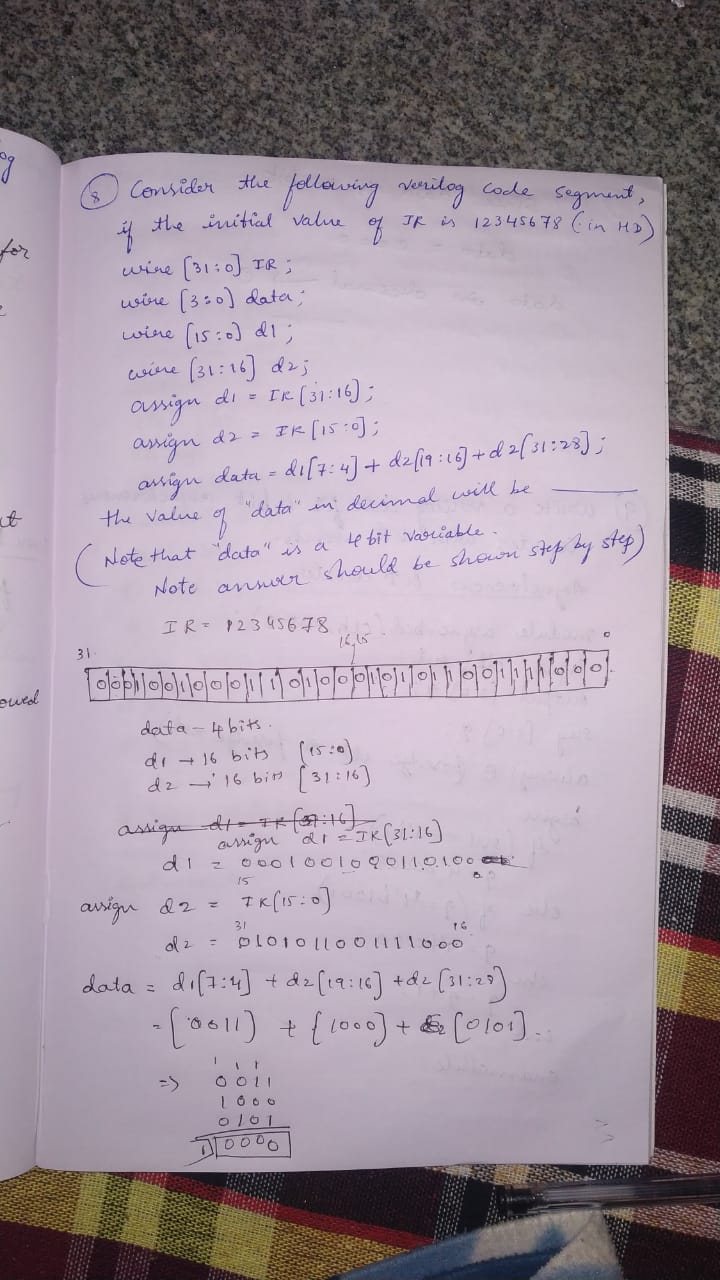 og
for
ut
owed
8 Consider the following verilog code segment,
if the initial value of IR is 12345678 (in HD)
wire [31:0] IR;
wire [3:0) data;
wire [15:0] d1;
wire [31:16] d2;
assign d1 = IR[31:16];
assign d2 = IR[15:0];
assign data = d1[7:4] + d2[19:16] + d2[31:28];
the value of "data" in decimal will be ____
(Note that "data" is a 4 bit variable.
Note answer should be shown step by step)
IR = 12345678
31 16 15 0
0 0 0 1 0 0 1 0 0 0 1 1 0 1 0 0 0 1 0 1 0 1 1 0 0 1 1 1 1 0 0 0
data - 4 bits.
d1 → 16 bits [15:0)
d2 → 16 bits [31:16]
assign d1 = IR[31:16]
assign d1 = IR(31:16]
d1 = 0001001000110100
15 0
assign d2 = IR[15:0]
31 16
d2 = 0101011001111000
data = d1[7:4] + d2[19:16] + d2[31:28]
= [0011) + [1000] + [0101].
1 1 1
=> 0011
1000
0101
1 0000